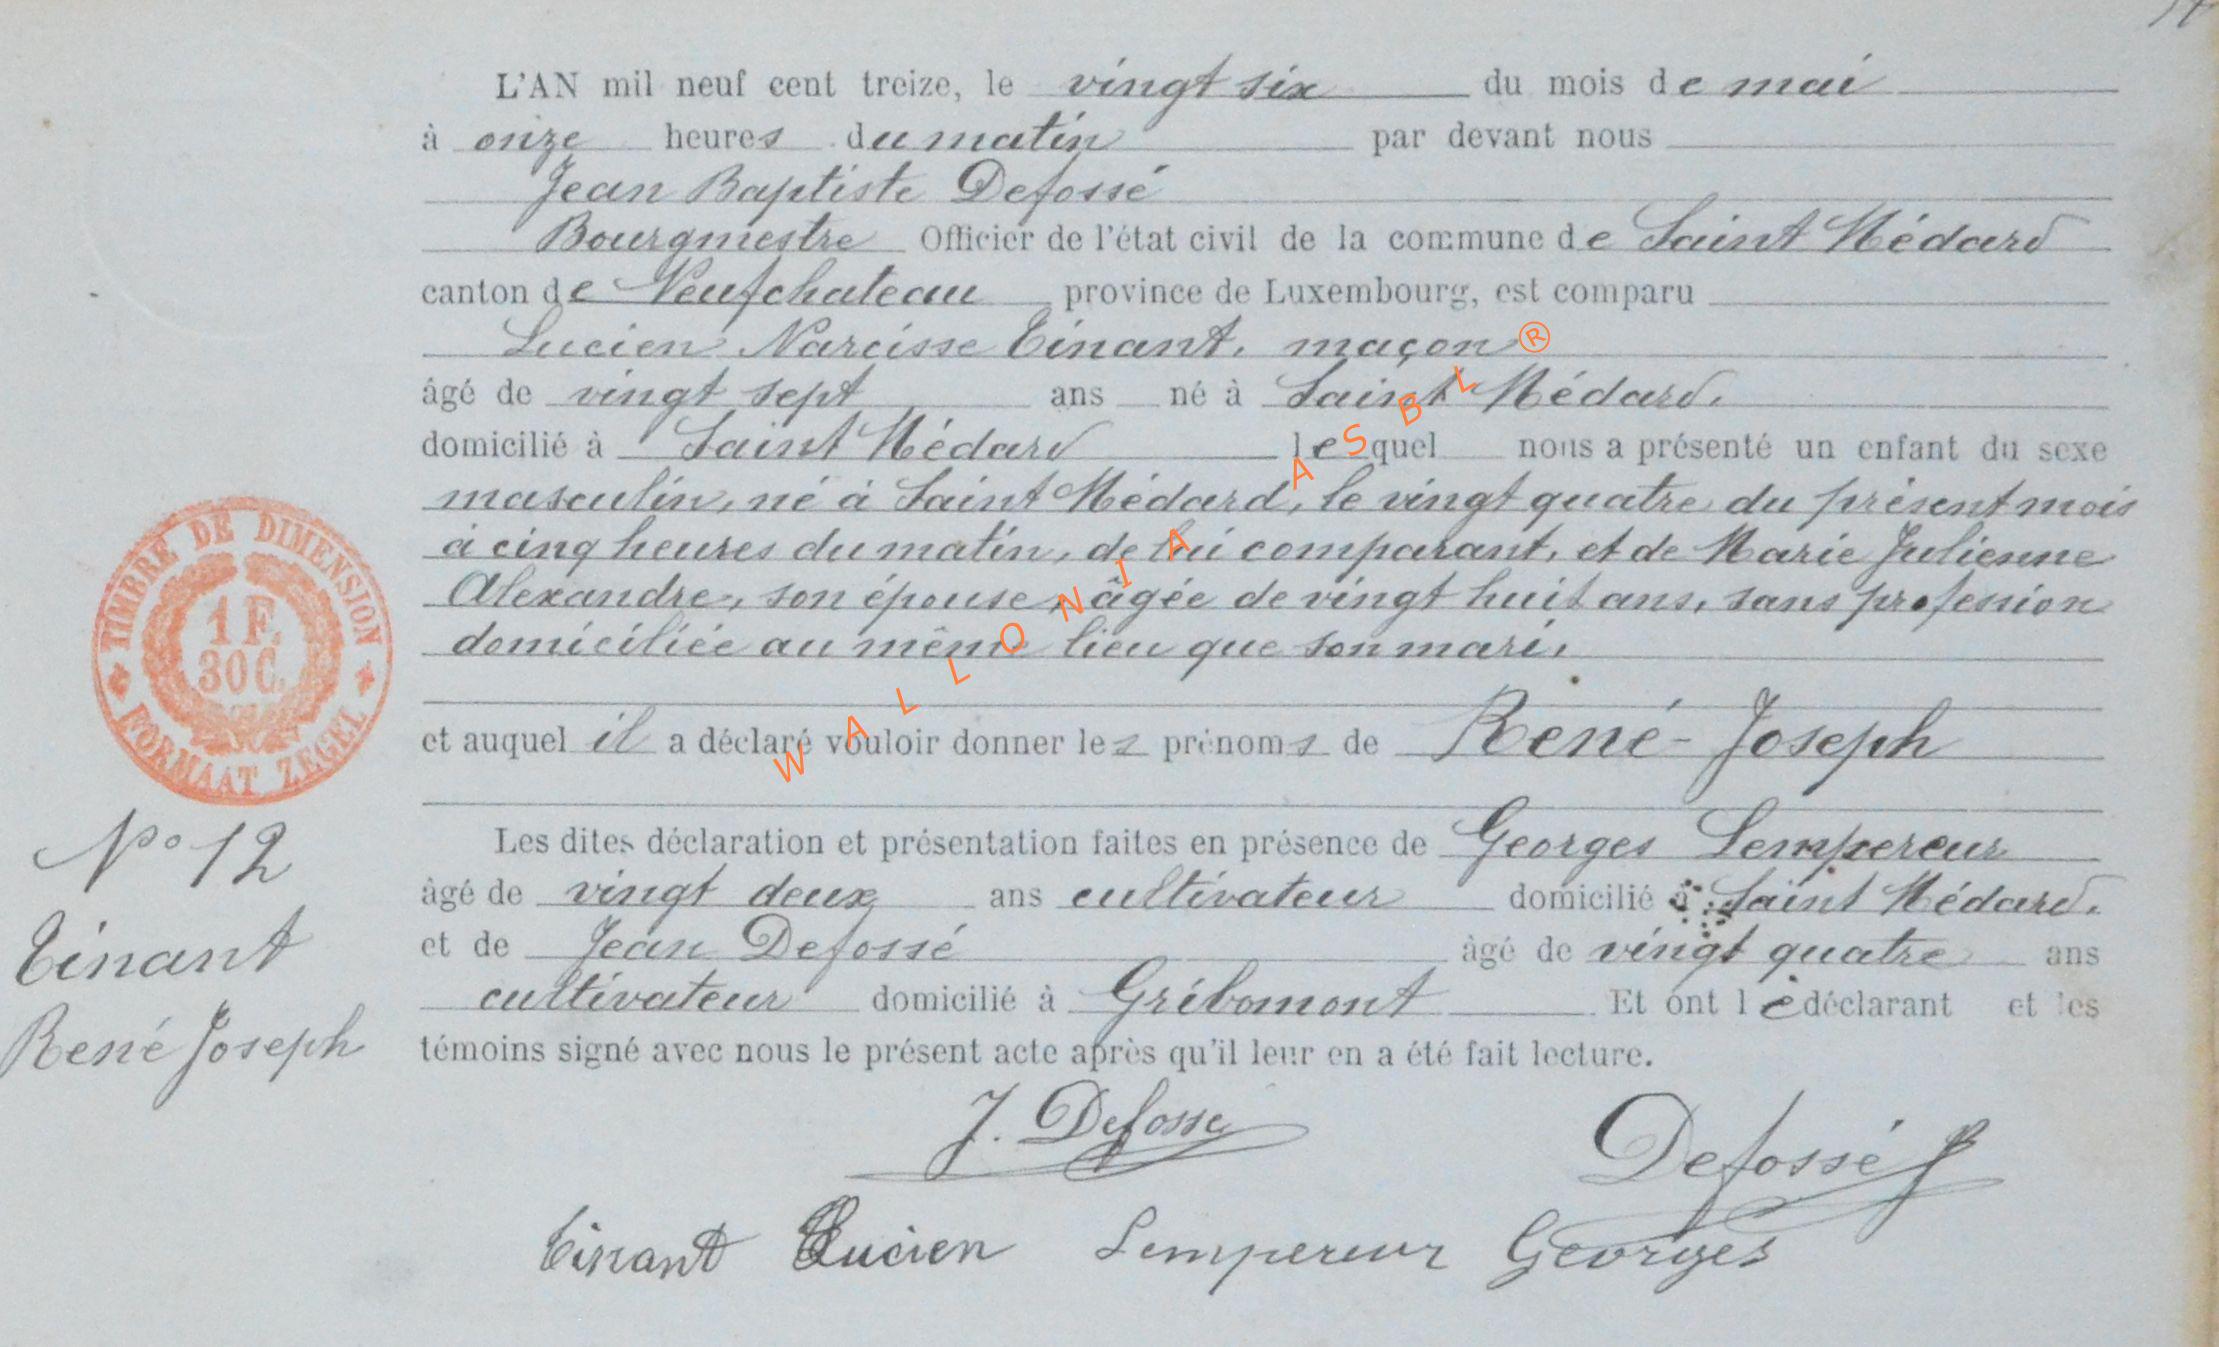 L'AN mil neuf cent treize, le vingt six du mois de mai
à onze heures du matin par devant nous
Jean Baptiste Defossé
Bourgmestre Officier de l'état civil de la commune de Saint Médard
canton de Neufchateau province de Luxembourg, est comparu
Lucien Narcisse Tinant, maçon
âgé de vingt sept ans né à Saint Médard,
domicilié à Saint Médard lequel nous a présenté un enfant du sexe
masculin, né à Saint Médard, le vingt quatre du présent mois
à cinq heures du matin, de lui comparant, et de Marie Julienne
Alexandre, son épouse, âgée de vingt huit ans, sans profession
domiciliée au même lieu que son mari,
et auquel il a déclaré vouloir donner les prénoms de René-Joseph
Les dites déclaration et présentation faites en présence de Georges Lempereur
âgé de vingt deux ans cultivateur domicilié à Saint Médard,
et de Jean Defossé âgé de vingt quatre ans
cultivateur domicilié à Gribomont Et ont le déclarant et les
témoins signé avec nous le présent acte après qu'il leur en a été fait lecture.
J. Defossé
Defossé J
Tinant Lucien Lempereur Georges
TIMBRE DE DIMENSION
1 F.
30 C.
FORMAAT ZEGEL
N° 12
Tinant
René Joseph
WALLONIA ASBL ®